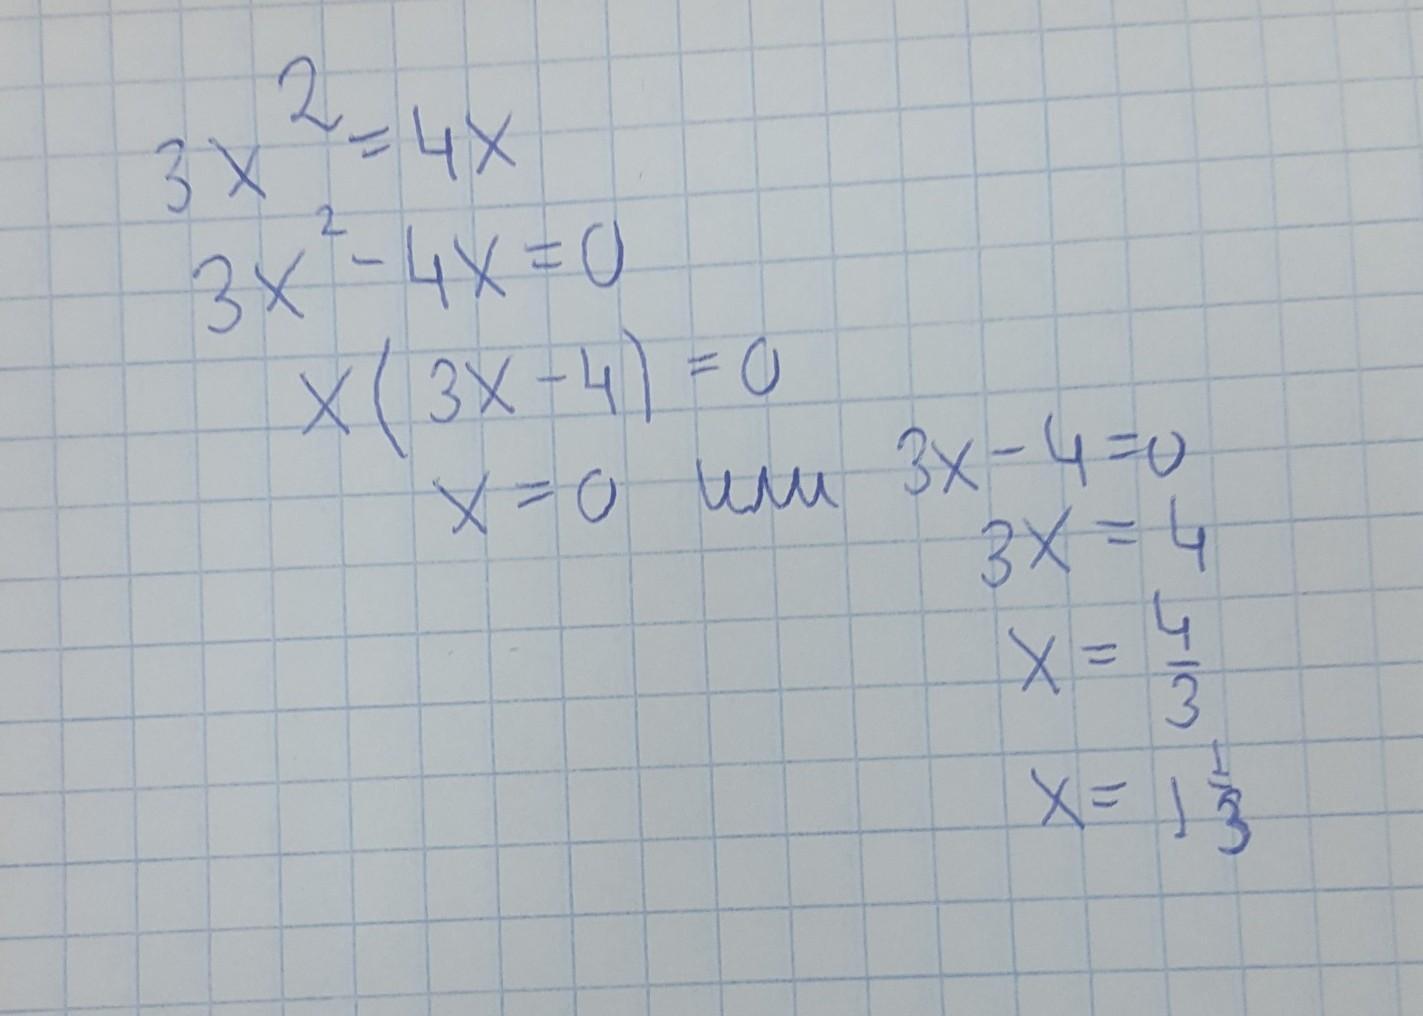 3x² = 4x
3x² - 4x = 0
x(3x - 4) = 0
x = 0 или 3x - 4 = 0
3x = 4
x = 4/3
x = 1 1/3